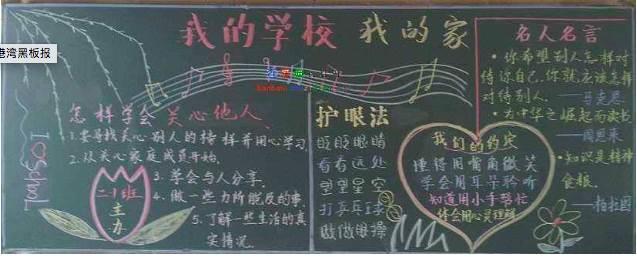 我的学校 我的家
港湾黑板报
I
School
怎样学会关心他人
1.要寻找关心别人的榜样并用心学习
2.从关心家庭成员开始.
3.学会与人分享.
4.做一些力所能及的事.
5.了解一些生活的真
实情况.
二1班
主办
护眼法
眨眨眼睛
看看远处
望望星空
打乒乓球
做做眼操
我们的约定
懂得用嘴角微笑
学会用耳朵聆听
知道用小手帮忙
体会用心灵理解
名人名言
·你希望别人怎样对
待你自己,你就应该怎样
对待别人.
——马克思
·为中华之崛起而读书
——周恩来
·知识是精神
食粮.
——柏拉图